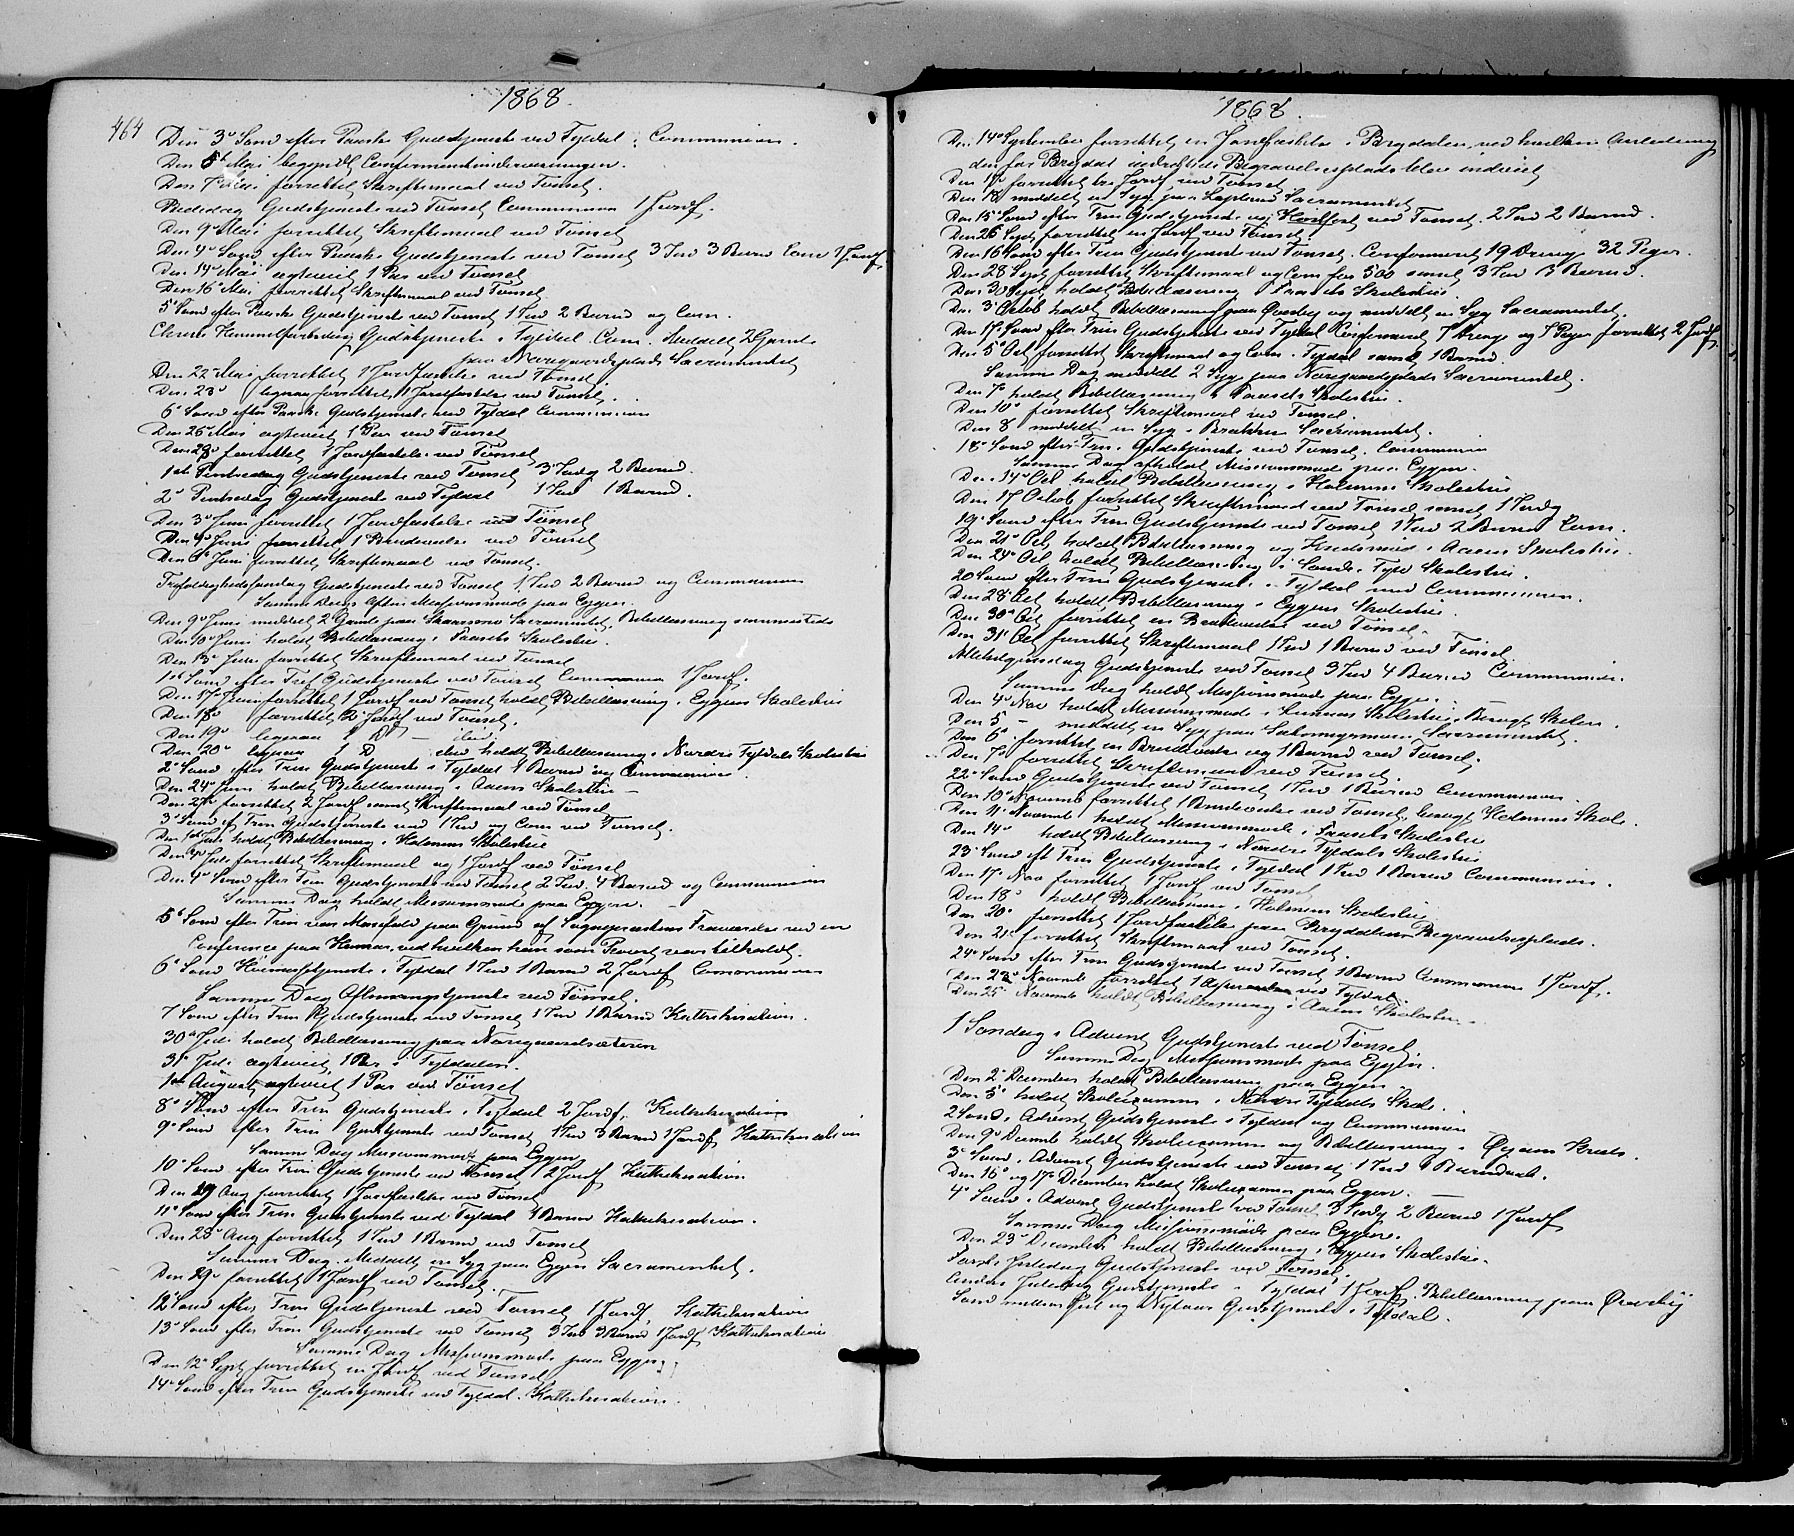 1868.
464
Den 3d Sønd efter Paaske Gudstjeneste ved Tyldal, Communion.
Den 5t Mai begyndt Confirmandundervisningen.
Den 7 Mai forrettet Skriftemaal ved Tønset.
Bededag Gudstjeneste ved Tønset Communion 1 Jordf.
Den 9d Mai forrettet Skriftemaal ved Tønset
Den 4d Sønd efter Paaske Gudstjeneste ved Tønset 3 Ind 3 Barnd Com 1 Jordf
Den 14d Mai ægteviet 1 Par ved Tønset
Den 16d Mai forrettet Skriftemaal ved Tønset
5d Sønd efter Paaske Gudstjeneste ved Tønset 1 Ind 2 Barnd og Com.
Christi Himmelfartsdag Gudstjeneste i Tyldal Com. Meddelt 2 Gamle
paa Noregaardsplads Sacramentet
Den 22d Mai forrettet 1 Jordfæstelse ved Tønset
Den 23d ligesaa forrettet 1 Jordfæstelse ved Tønset.
6d Sønd efter Paaske Gudstjeneste ved Tyldal Communion
Den 26d Mai ægteviet 1 Par ved Tønset
Den 29d forrettet 1 Jordfæstelse ved Tønset
1ste Pintsedag Gudstjeneste ved Tønset 3 Indg 2 Barnd.
2d Pintsedag Gudstjeneste ved Tyldal 1 Ind 1 Barnd.
Den 3d Juni forrettet 1 Jordfæstelse ved Tønset
Den 4d Juni forrettet 1 Brudevielse ved Tønset
Den 6d Juni forrettet Skriftemaal ved Tønset.
Trefoldighedssøndag Gudstjeneste ved Tønset 1 Ind 2 Barnd og Communion
Samme Dags Aften Missionsmøde paa Eggen.
Den 9d Juni meddelt 2 Gamle paa Sacramentet, Bibellæsning sammesteds
Den 10d Juni holdt Bibellæsning i Faasets Skolestue.
Den 13d Juni forrettet Skriftemaal ved Tønset
1st Sønd efter Tref Gudstjeneste ved Tønset Communion 1 Jordf.
Den 17d Juni forrettet 1 Jordf ved Tønset holdt Bibellæsning i Eggens Skolestue
Den 18d forrettet 2 Jordf ved Tønset.
Den 19d ligesaa 1 D - ibid.
Den 20d ligesaa 1 D holdt Bibellæsning i Nordre Tyldals Skolestue
2d Sønd efter Trin Gudstjeneste i Tyldal 4 Barnd og Communion.
Den 24d Juni holdt Bibellæsning i Aaens Skolestue -
Den 27d forrettet 2 Jordf samt Skriftemaal ved Tønset
3d Sønd ef Trin Gudstjeneste ved 1 Ind og Com ved Tønset.
Den 1st Juli holdt Bibellæsning i Holmens Skolestue
Den 4d Juli forrettet Skriftemaal og 1 Jordf ved Tønset
Den 4d Sønd efter Trin Gudstjeneste ved Tønset 2 Ind. 4 Barnd og Communion
Samme Dag holdt Missionsmøde paa Eggen.
5d Sønd efter Trin var Messefald paa Grund af Sognepræstens Fraværelse ved en
Conference paa Hamar, ved hvilken han som Provst var tilholdt.
6d Sønd Høimessetjeneste i Tyldal 1 Ind 1 Barnd 2 Jordf Communion
Samme Dag Aftensangstjeneste ved Tønset.
7 Sønd efter Trin Gudstjeneste ved Tønset 1 Ind 1 Barnd Kathekisation.
30d Juli holdt Bibellæsning paa Noregaardsæteren
31d Juli ægteviet 1 Par i Tyldalen.
1ste August ægteviet 1 Par ved Tønset
8d Sønd efter Trin Gudstjeneste i Tyldal 2 Jordf. Kathekisation
9d Sønd efter Trin Gudstjeneste ved Tønset 1 Ind 3 Barnd 1 Jordf Kathekisation
Samme Dag Missionsmøde paa Eggen
10d Sønd efter Trin Gudstjeneste ved Tønset 2 Jordf Kathekisation
Den Aug forrettet 1 Jordfæstelse ved Tønset
11d Sønd efter Trin Gudstjeneste ved Tyldal 4 Barnd Kathekisation.
Den 28d Aug forrettet 1 Ind 1 Barnd ved Tønset
Samme Dag Meddelt en Syg paa Eggen Sacramentet.
Den 29d forrettet 1 Jordf ved Tønset.
12d Sønd efter Trin Gudstjeneste ved Tønset 1 Jordf. Kathekisation
13d Sønd efter Trin Gudstjeneste ved Tønset 3 Ind 3 Barnd 1 Jordf Kathekisation
Samme Dag Missionsmøde paa Eggen
Den 12d Sept forrettet en Jordf ved Tønset
14d Sønd efter Trin Gudstjeneste ved Tyldal. Kathekisation.
1868.
Den 14d September forrettet en Jordfæstelse i Brydalen, ved hvilken Anledning
den for Brydal indrettede Begravelsesplads blev indviet
Den 17d forrettet tre Jordf ved Tønset
Den 18 meddelt en Syg paa Sacramentet
Den 15d Sønd efter Trin Gudstjeneste og Høstfest ved Tønset. 2 Ind 2 Barnd.
Den 26 Sept forrettet en Jordf ved Tønset
Den 16 Sønd efter Trin Gudstjeneste ved Tønset. Confirmeret 19 Drenge 32 Piger.
Den 28 Sept forrettet Skriftemaal og Com for 500 samt 3 Ind 3 Barnd.
Den 30 Sept holdt Bibellæsning i Faasets Skolestue.
Den 3d Octob holdt Bibellæsning paa Øvreby og meddelt en Syg Sacramentet.
Den 17d Sønd efter Trin Gudstjeneste ved Tyldal Confirmeret 7 Drenge og 5 Piger forrettet 2 Jordf.
Den 5d Oct forrettet Skriftemaal og Com i Tyldal samt 1 Barnd.
Samme Dag meddelt 2 Syge paa Noregaardsplads Sacramentet.
Den 7d holdt Bibellæsning i Faasets Skolestue.
Den 10d forrettet Skriftemaal ved Tønset.
Den 8 meddelt en Syg i Brækken Sacramentet.
18d Sønd efter Trin. Gudstjeneste ved Tønset. Communion
Samme Dag afholdt Missionsmøde paa Eggen.
Den 14d Oct holdt Bibellæsning i Holmens Skolestue
Den 17 Octob forrettet Skriftemaal ved Tønset samt 1 Indg
19d Sønd efter Trin Gudstjeneste ved Tønset 1 Ind 2 Barnd Com.
Den 21d Oct holdt Bibellæsning og Kredsmøde i Aaens Skolestue.
Den 24d Oct holdt Bibellæsning i Søndre Tyld Skolestue.
20 Sønd efter Trin Gudstjeneste i Tyldal med Communion.
Den 28 Oct holdt Bibellæsning i Eggens Skolestue.
Den 30d Oct forrettet en Brudevielse ved Tønset.
Den 31d Oct forrettet Skriftemaal 1 Ind 1 Barnd ved Tønset
Allehelgensdag Gudstjeneste ved Tønset 3 Ind 4 Barnd Communion.
Samme Dag holdt Missionsmøde paa Eggen.
Den 4d Nov holdt Missionsmøde i Skolestue. Besøgt Skolen.
Den 5 - meddelt en Syg paa Sacramentet.
Den 6d forrettet en Brudevielse og 1 Barnd ved Tønset.
Den 7d forrettet Skriftemaal ved Tønset.
22d Sønd Gudstjeneste ved Tønset 1 Ind 1 Barnd Communion.
Den 10d Novemb forrettet 1 Brudevielse ved Tønset, besøgt Holmens Skole.
Den 11d Novemb holdt Missionsmøde i Faasets Skolestue
Den 14d holdt Bibellæsning i Nordre Tyldals Skolestue
23d Sønd eft Trin Gudstjeneste i Tyldal 1 Ind 1 Barnd Communion.
Den 17d Nov forrettet 1 Jordf ved Tønset
Den 18d holdt Bibellæsning i Holmens Skolestue
Den 20d forrettet 1 Jordfæstelse paa Brydalens Begravelsesplads.
Den 21d forrettet Skriftemaal ved Tønset.
24d Sønd efter Trin Gudstjeneste ved Tønset 1 Barnd Communion 1 Jordf.
Den 23d Novemb forrettet 1 ved Tyldal.
Den 25d Novemb holdt Bibellæsning i Aaens Skolestue.
1 Søndag i Advent Gudstjeneste ved Tønset
Samme Dag Missionsmøde paa Eggen.
Den 2d December holdt Bibellæsning paa Eggen.
Den 5d holdt Skoleexamen i Nordre Tyldals Skole.
2 Sønd i Advent Gudstjeneste i Tyldal og Communion
Den 9d Decemb holdt Skoleexamen og Bibellæsning i Øyans Kreds.
3d Sønd i Advent Gudstjeneste ved Tønset 1 Ind 6 Barndaab.
Den 16d og 17d December holdt Skoleexamen paa Eggen.
4d Sønd i Advent Gudstjeneste ved Tønset 3 Indg 2 Barnd 1 Jordf
Samme Dag Missionsmøde paa Eggen.
Den 23d December holdt Bibellæsning i Eggens Skolestue.
Første Juledag Gudstjeneste ved Tønset.
Anden Juledag Gudstjeneste i Tyldal 1 Jordf. Bibellæsning paa Øvreby
Sønd mellem Jul og Nytaar Gudstjeneste i Tyldal.